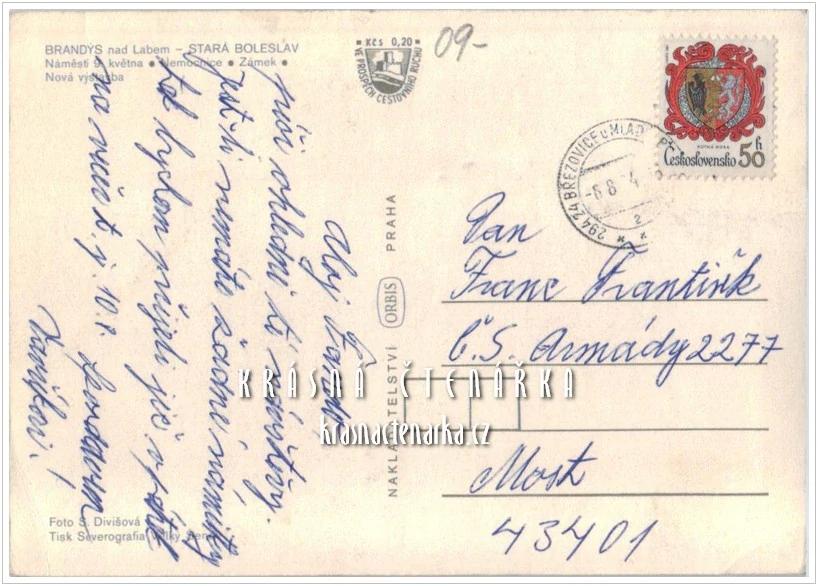 BRANDÝS nad Labem – STARÁ BOLESLAV
Náměstí 9. května • Nemocnice • Zámek •
Nová výstavba
Kčs 0,20
VE PROSPĚCH CESTOVNÍHO RUCHU
09-
KUTNÁ HORA
Československo 50 h
294 24 BŘEZOVICE U MLAD
-6.8. 4
2
Ahoj
píši ohledně té návštěvy.
jestli nemáte žádné námitky
tak bychom přijeli již v pátek
na večer t. j. 10. 8.
NAKLADATELSTVÍ ORBIS PRAHA
Pan
Franc František
Č.S. Armády 2277
Most
43401
KRÁSNÁ ČTENÁŘKA
krasnactenarka.cz
Foto S. Divišová
Tisk Severografia Velký Šenov